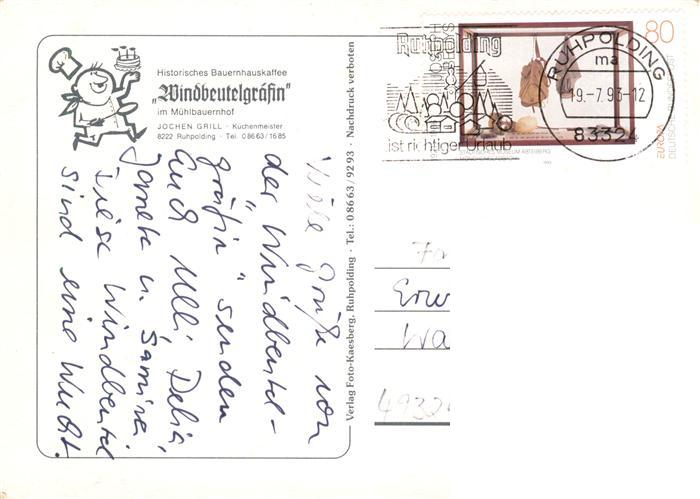 Historisches Bauernhauskaffee
„Windbeutelgräfin"
im Mühlbauernhof
JOCHEN GRILL · Küchenmeister
8222 Ruhpolding · Tel. 08663/1685
Viele Grüße von
der „Windbeutel-
gräfin" senden
Euch Ulli, Delia,
u.
Diese Windbeutel
sind eine Wucht.
Verlag Foto-Kaesberg, Ruhpolding · Tel.: 08663/9293 · Nachdruck verboten
Ruhpolding
ist richtiger Urlaub
RUHPOLDING
ma
19.-7.93-12
83324
80
EUROPA
DEUTSCHE BUNDESPOST